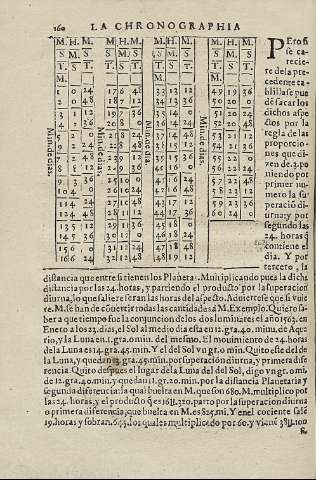 160 LA CHRONOGRAPHIA
M. H. M. M. H. M. M. H. M. M. H. M.
S M S M S M S M
T. S. T. S. T. S. T. S.
M. M. M. M.
1 0 24 17 6 48 33 13 12 49 19 36
2 0 48 18 7 12 34 13 36 50 20 0
3 1 12 19 7 36 35 14 0 51 20 24
4 1 36 20 8 0 36 14 24 52 20 48
5 2 0 21 8 24 37 14 48 53 21 12
6 2 24 22 8 48 38 15 12 54 21 36
7 2 48 23 9 12 39 15 36 55 22 0
8 3 12 24 9 36 40 16 0 56 22 24
9 3 36 25 10 0 41 16 24 57 22 48
10 4 0 26 10 24 42 16 48 58 23 12
11 4 24 27 10 48 43 17 12 59 23 36
12 4 48 28 11 12 44 17 36 60 24 0
13 5 12 29 11 36 45 18 0
14 5 36 30 12 0 46 18 24
15 6 0 31 12 24 47 18 48
16 6 24 32 12 48 48 19 12
Min. de dias.
Min. de dias.
Min. de dia
Min. de dias.
PEro si
se ca-
reciere
de la pre-
cedente ta
blilla se pue
de sacar los
dichos aspe
ctos por la
regla de las
proporcio-
nes que di-
zen de. 3. po
niendo por
primer nu-
mero la su
peració di-
urna: y por
segundo las
24. horas q̃
contiene el
dia. Y por
tercero, la
distancia que entre si tienen los Planetas. Multiplicando pues la dicha
distancia por las 24. horas, y partiendo el producto por la superacion
diurna, lo que saliere seran las horas del aspecto. Aduiertese que si vuie
re. M. se han de conuertir todas las cantidades a M. Exemplo. Quiero sa-
ber a que tiempo fue la conjuncion de los dos luminares el año 1562. en
Enero a los 23. dias, el Sol al medio dia esta en 12. gra. 40. minu. de Aqua
rio, y la Luna en 1. gra. 0 min. del mesmo. El mouimiento de 24. horas
de la Luna es 14. gra. 45. min. Y el del Sol vn gr. 0. min. Quito este del de
la Luna, y quedan 13. gra. 45. min. por superacion diurna, y primera dife
rencia. Quito despues el lugar de la Luna del del Sol, digo vn gr. 0. mi.
de 12. gra. 40. min. y quedan 11. gr. 20. min. por la distancia Planetaria y
segunda diferencia: la qual buelta en M. que son 680. M. multiplico por
las 24. horas, y el producto q̃ es 16ll. 320. parto por la superacion diurna
o primera diferencia, que buelta en M. es 825. mi. Y en el cociente salẽ
19. horas y sobran. 645. los quales multiplicado por 60. y vienẽ 38ll. 700